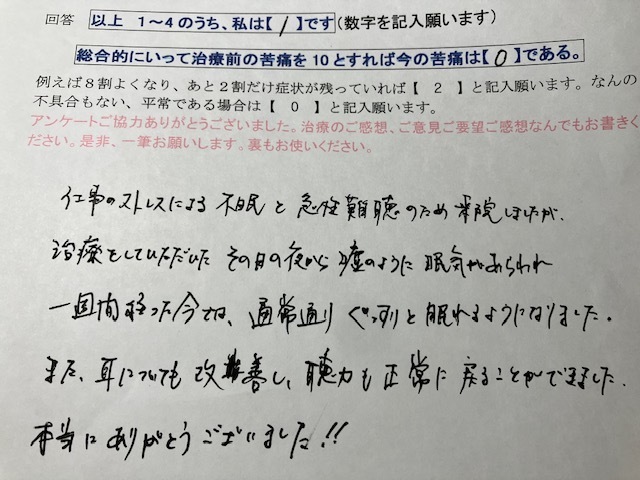 回答 以上 1～4のうち、私は【 1 】です(数字を記入願います)
総合的にいって治療前の苦痛を10とすれば今の苦痛は【 0 】である。
例えば8割よくなり、あと2割だけ症状が残っていれば【 2 】と記入願います。なんの
不具合もない、平常である場合は【 0 】と記入願います。
アンケートご協力ありがとうございました。治療のご感想、ご意見ご要望ご感想なんでもお書きく
ださい。是非、一筆お願いします。裏もお使いください。
仕事のストレスによる 不眠と 急性難聴のため 来院しましたが、
治療をしていただいた その日の夜から 嘘のように 眠気があらわれ
一週間経った今では、通常通り ぐっすりと 眠れるようになりました。
また、耳についても 改善し、聴力も 正常に 戻ることができました。
本当に ありがとうございました!!